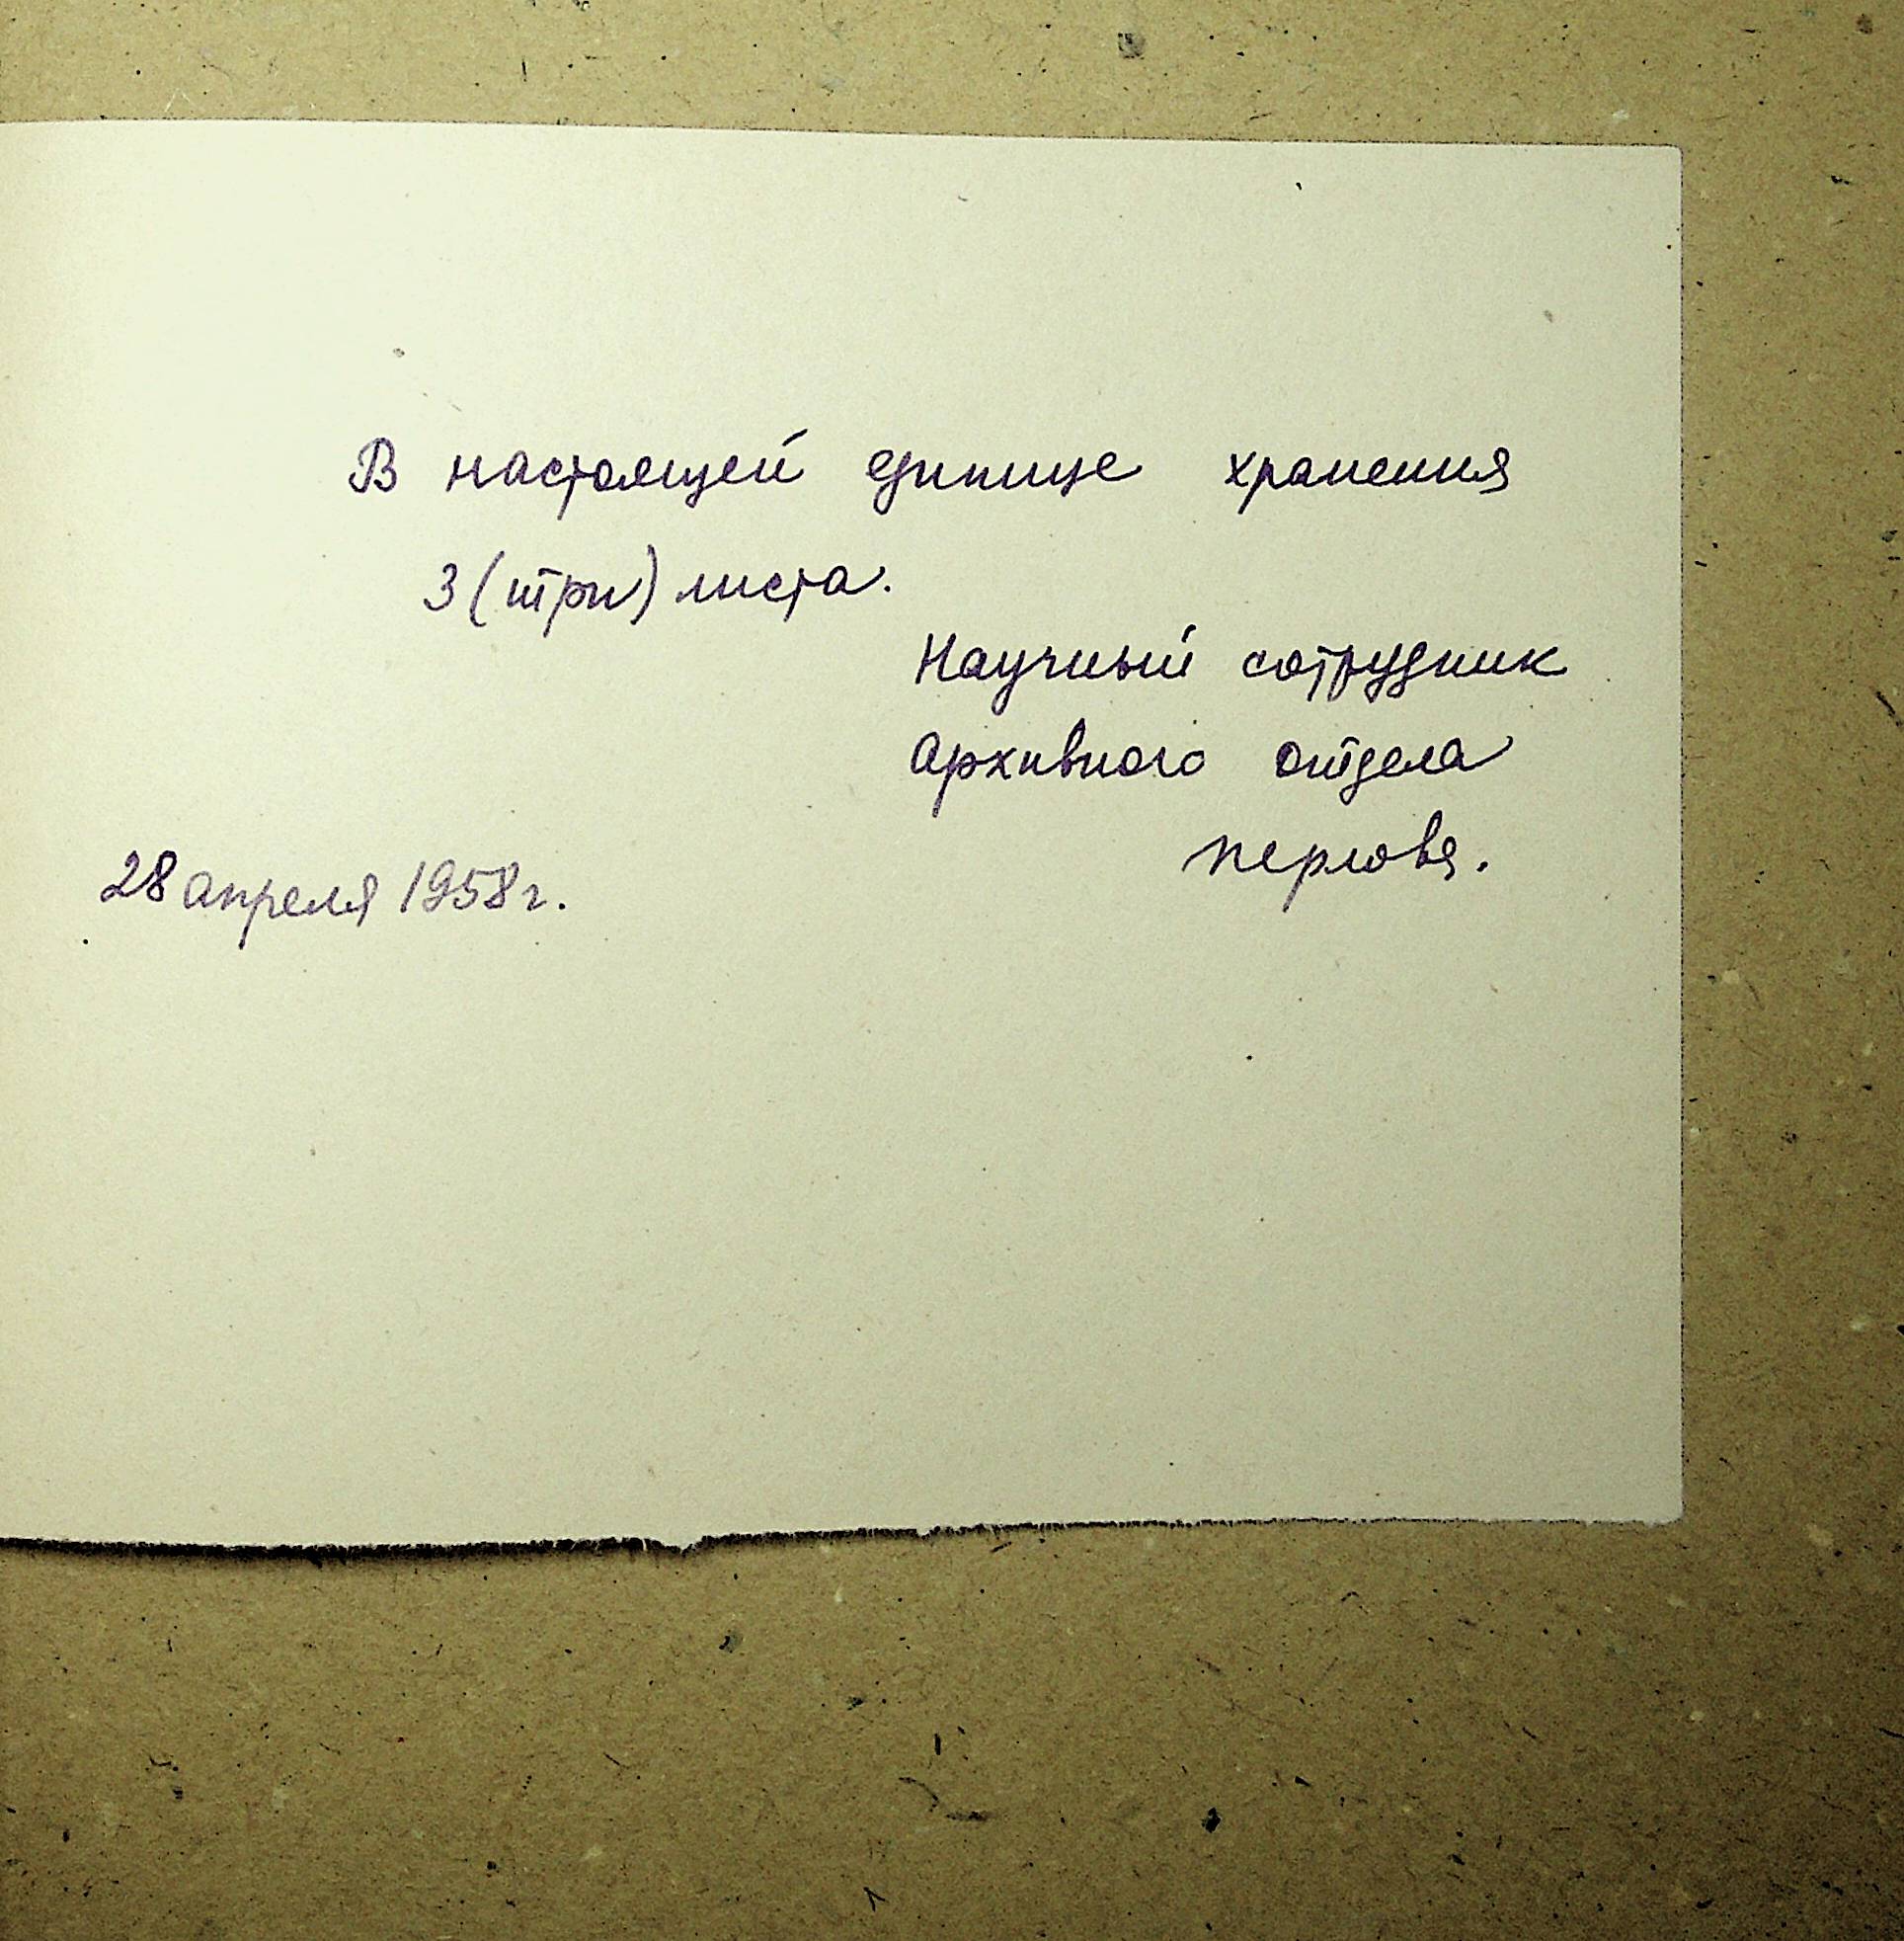 В настоящей единице хранения
3 (три) листа.
Научный сотрудник
Архивного отдела
Перлова.
28 апреля 1958 г.